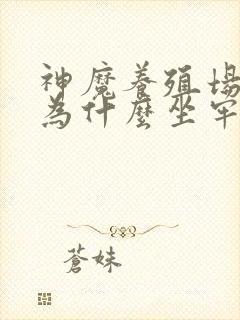 神魔養殖場
為什麼坐牢
蒼妹